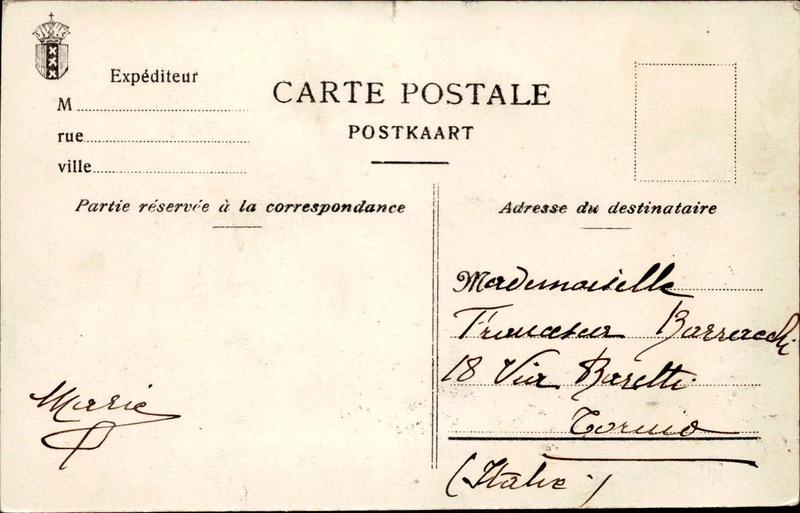 Expéditeur
M
rue
ville
CARTE POSTALE
POSTKAART
Partie réservée à la correspondance
Adresse du destinataire
Mademoiselle
Francesca Barracchi
18 Via Baretti
Torino
(Italie)
Marie